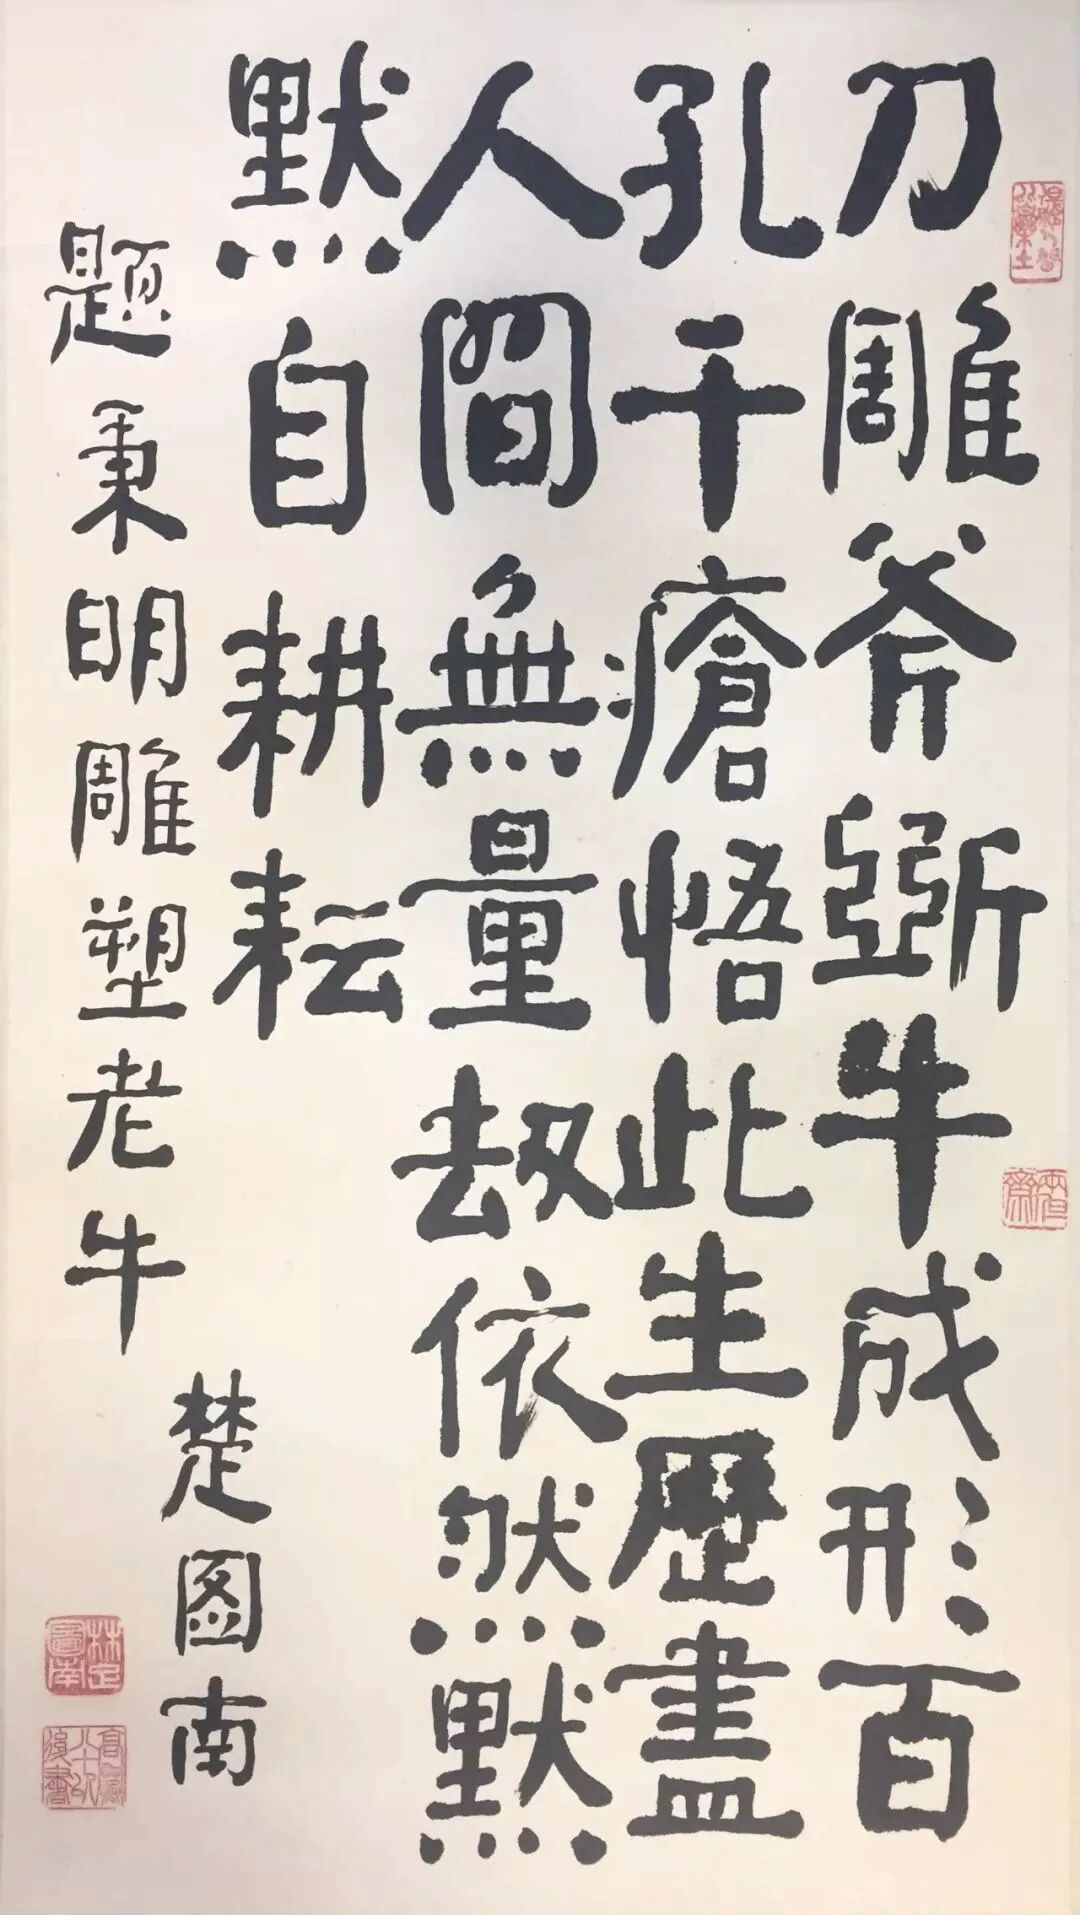 刀雕斧斲牛成形百
孔千瘡悟此生歷盡
人間無量劫依然默
默自耕耘
题秉明雕塑老牛
楚图南
楚圖南